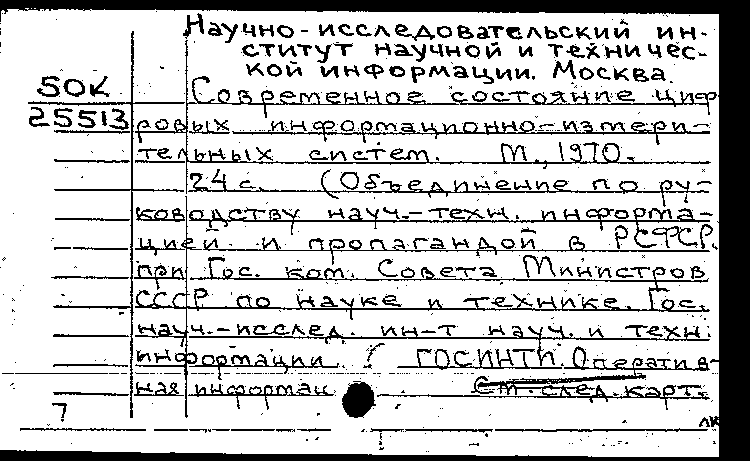 Научно-исследовательский ин-
ститут научной и техничес-
кой информации. Москва.
50К
Современное состояние циф-
25513
ровых информационно-измери-
тельных систем. М., 1970.
24 с. (Объединение по ру-
ководству науч.-техн. информа-
цией и пропагандой в РСФСР.
при Гос. ком. Совета Министров
СССР по науке и технике. Гос.
науч.-исслед. ин-т науч. и техн.
информации. ГОСИНТИ. Оператив-
ная информац
См. след. карт.
7
лк